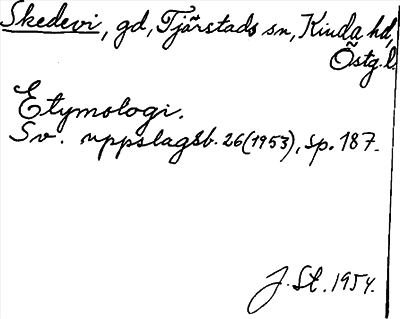 Skedevi, gd, Tjärstads sn, Kinda hd,
Östg. l.
Etymologi.
Sv. uppslagsb. 26(1953), sp. 187.
J. St. 1954.